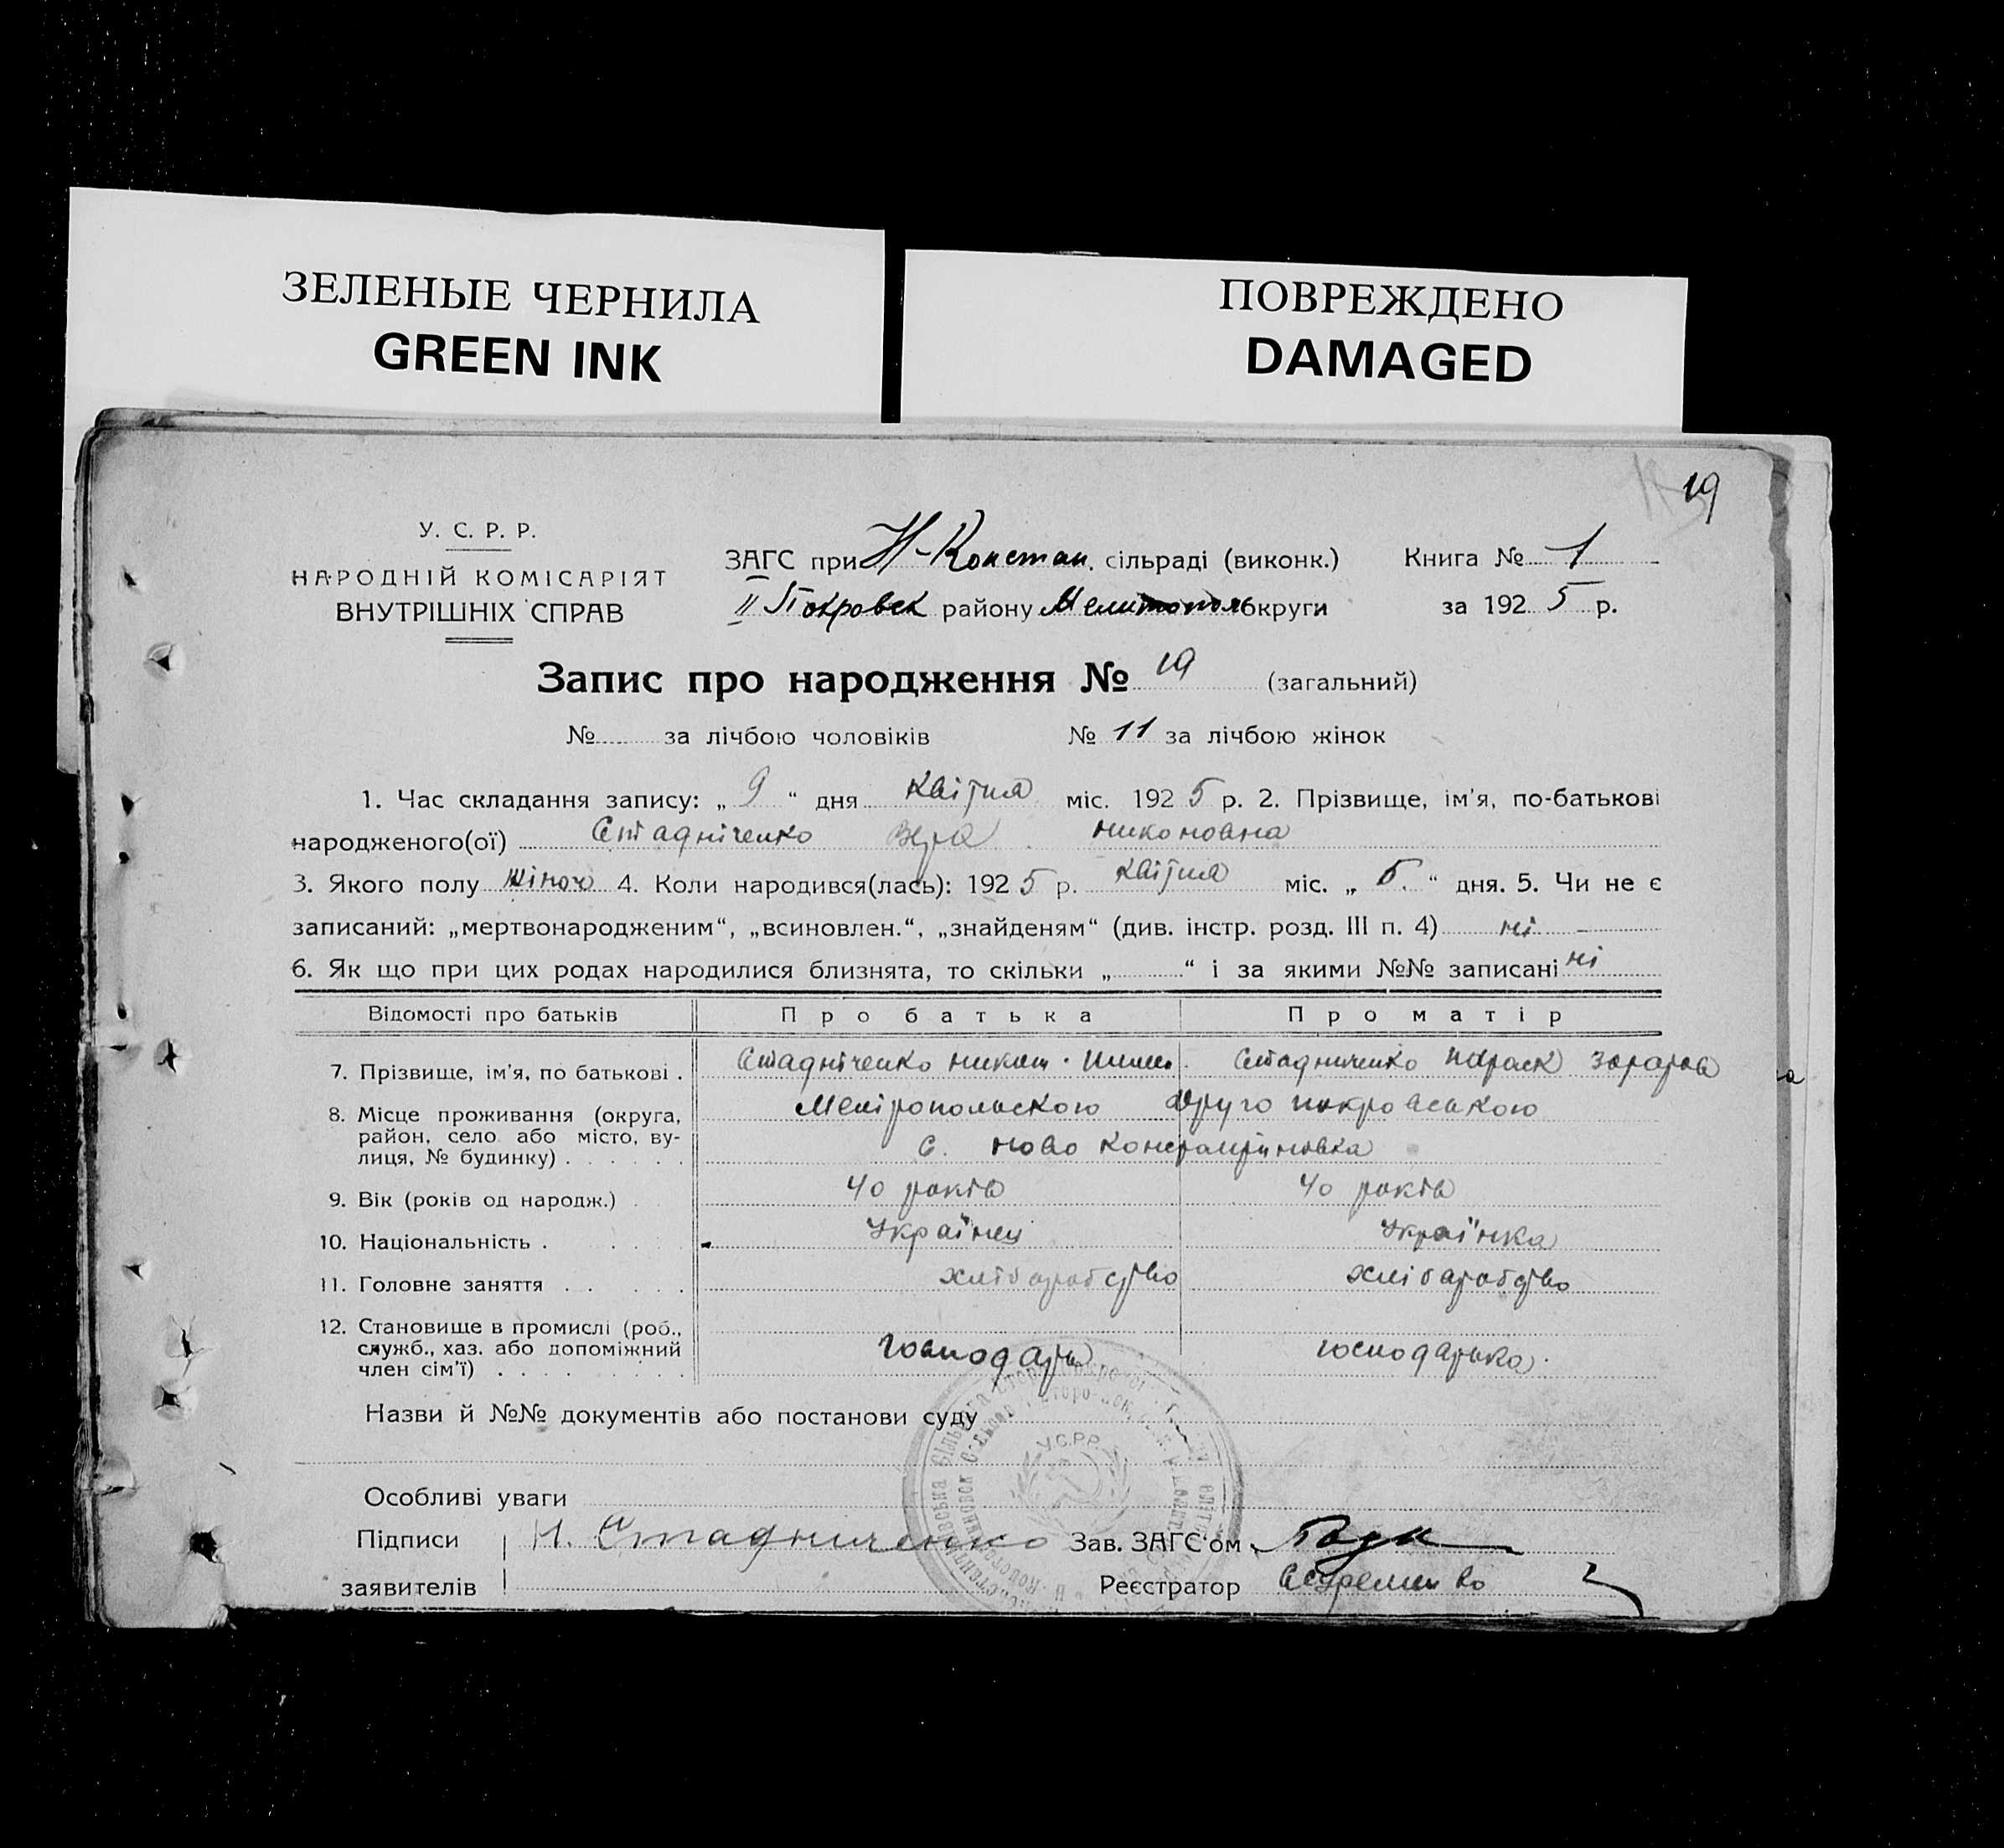 ЗЕЛЕНЫЕ ЧЕРНИЛА
GREEN INK
ПОВРЕЖДЕНО
DAMAGED
19
У. С. Р. Р.
НАРОДНІЙ КОМІСАРІЯТ
ВНУТРІШНІХ СПРАВ
ЗАГС при Н-Констан. сільраді (виконк.)
II Покровск району Мелитополь округи
Книга № 1
за 1925 р.
Запис про народження № 19 (загальний)
№ за лічбою чоловіків № 11 за лічбою жінок
1. Час складання запису: „ 9 “ дня квітня міс. 1925 р. 2. Прізвище, ім'я, по-батькові
народженого(ої) Стадніченко Вера Никоновна
3. Якого полу жіноч 4. Коли народився(лась): 1925 р. квітня міс. „ 5. “ дня. 5. Чи не є
записаний: „мертвонародженим“, „всиновлен.“, „знайденям“ (див. інстр. розд. III п. 4) ні –
6. Як що при цих родах народилися близнята, то скільки „ “ і за якими №№ записані ні
Відомості про батьків Про батька Про матір
7. Прізвище, ім'я, по батькові . Стадніченко Никон Стадниченко Параск
8. Місце проживання (округа, Мелітопольскою Друго покровською
район, село або місто, ву-
лиця, № будинку) . . . . . . с. Ново Константіновка
9. Вік (років од народж.) . 40 років 40 років
10. Національність . Українец Українка
11. Головне заняття . . хліборобство хліборобство
12. Становище в промислі (роб.,
служб., хаз. або допоміжний господарь господарька.
член сім'ї) . . . . .
Назви й №№ документів або постанови суду
У.С.Р.Р.
Особливі уваги
Підписи Н. Стадниченко Зав. ЗАГС'ом
заявителів Реєстратор